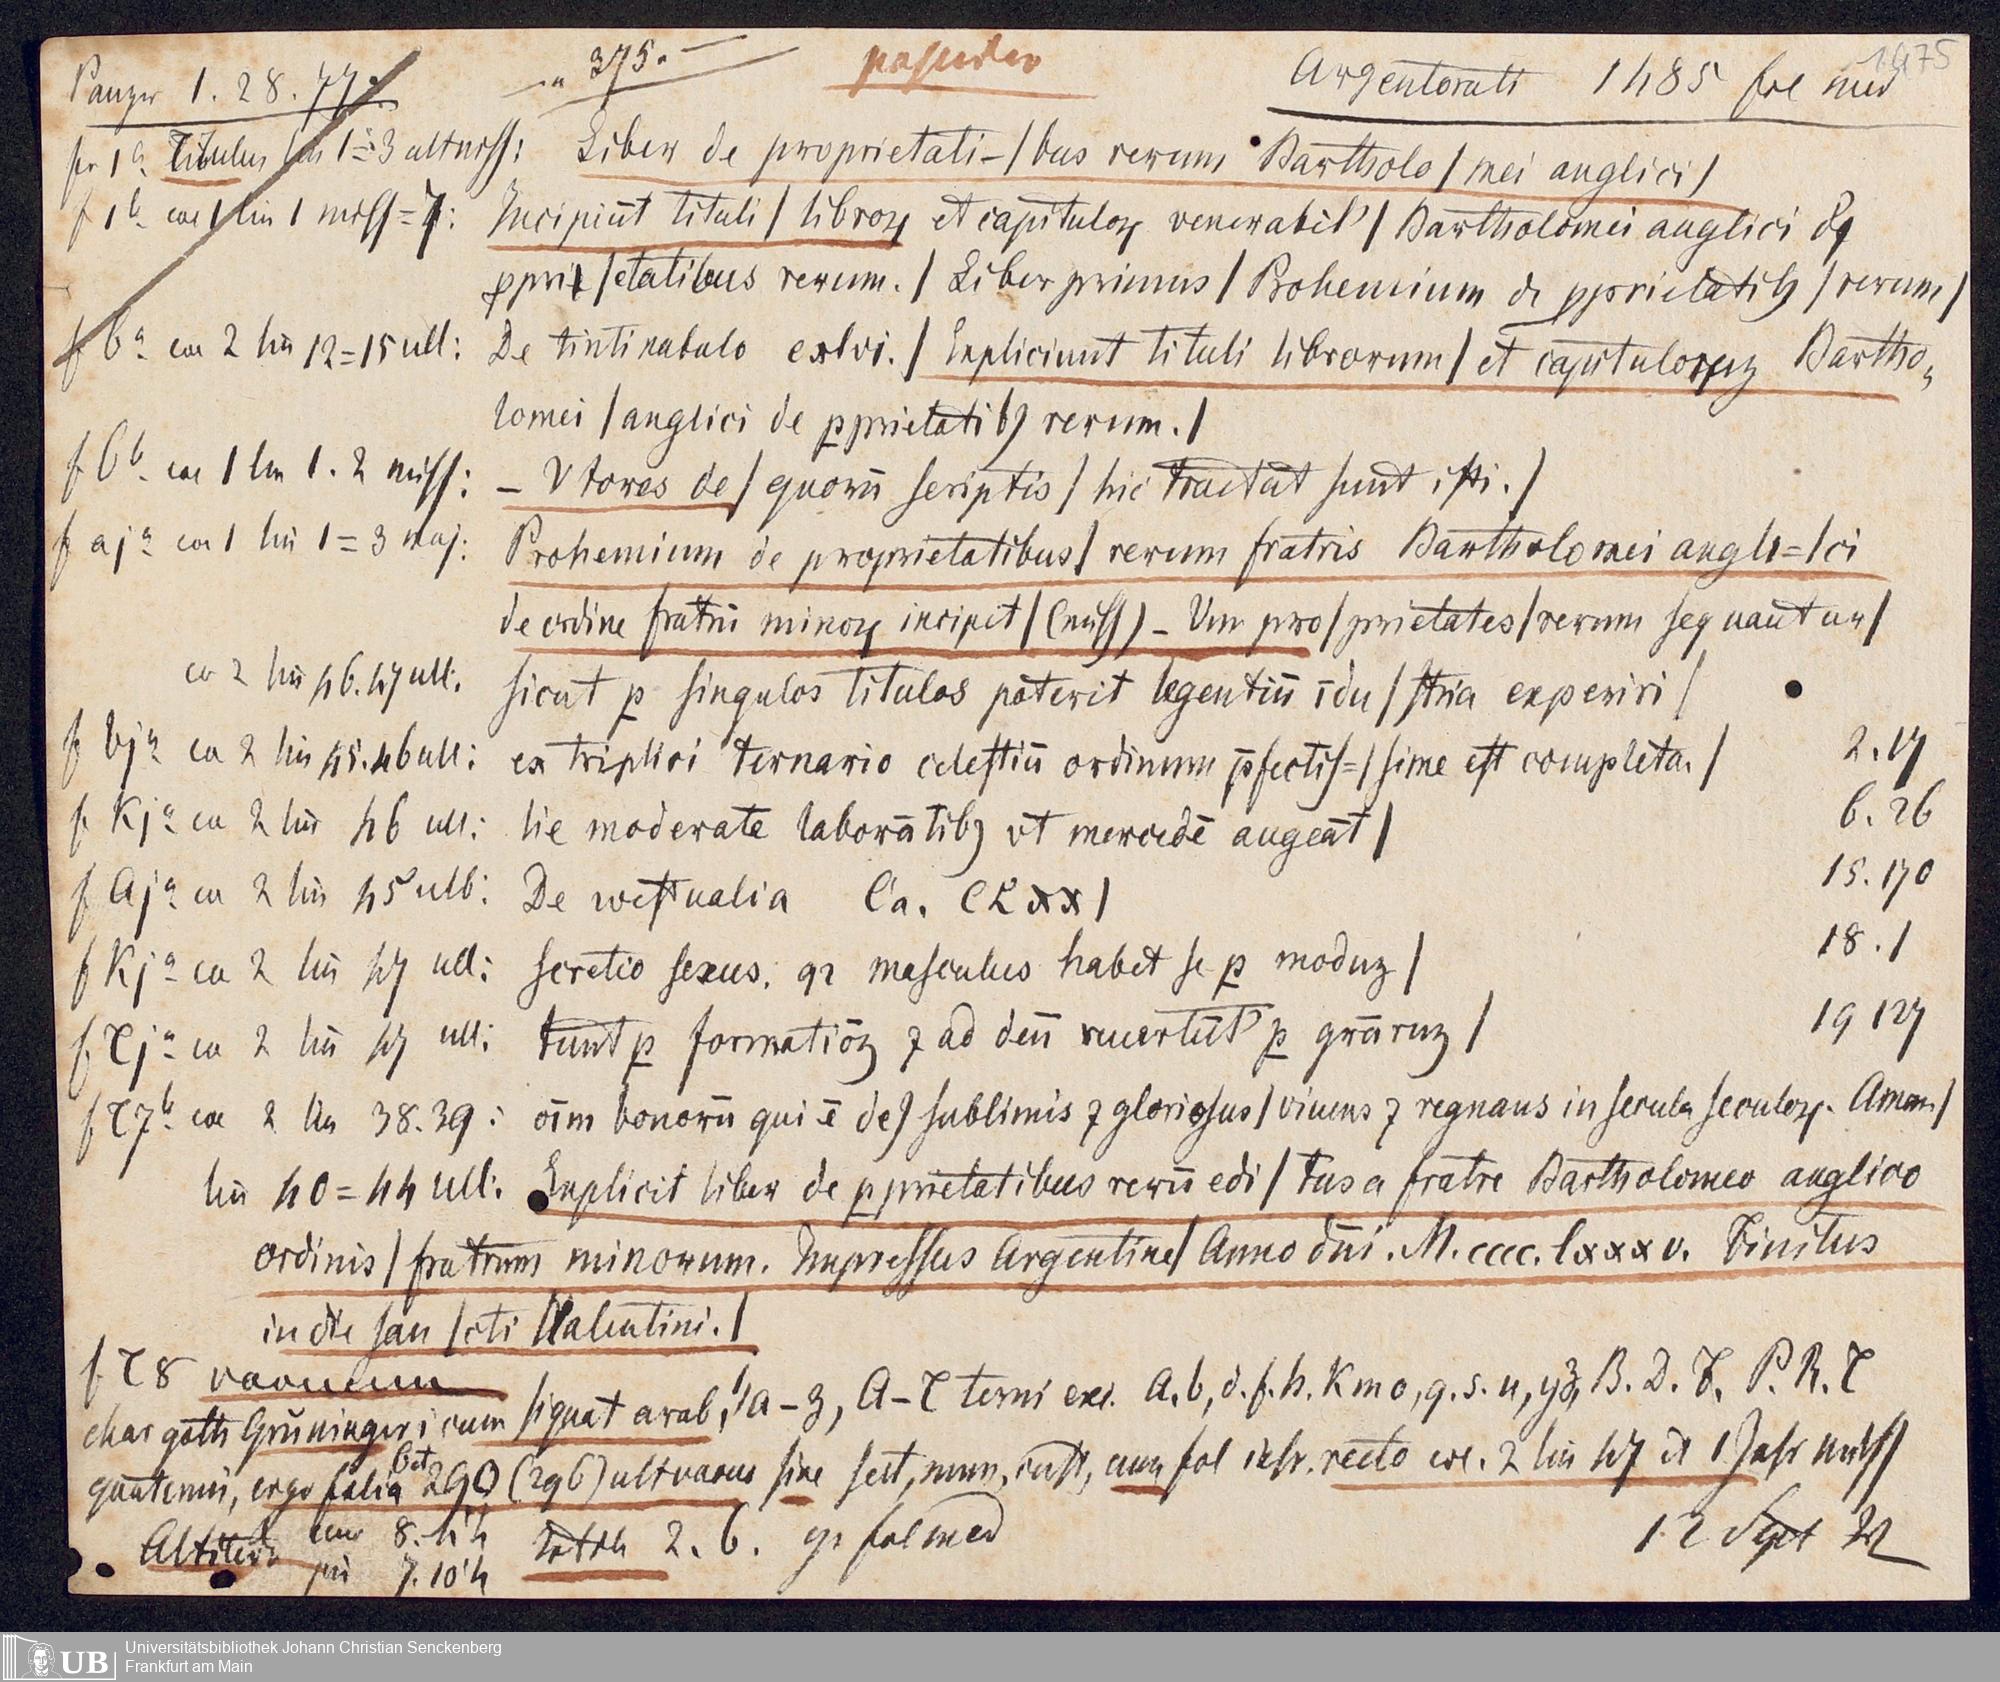 Panzer 1. 28. 77. „ 375. — possideo Argentorati 1485 fol med 1475
f 1ª Titulus lin 1=3 ult miss: Liber de proprietati-/bus rerum Bartholo/mei anglici/
f 1b col 1 lin 1 miss=7: Incipiūt tituli/libroꝝ et capituloꝝ venerabil'/Bartholomei anglici de
ꝓpri/etatibus rerum./Liber primus/Prohemium de ꝓprietatibꝫ/rerum/
f 6ª col 2 lin 12=15 ull: De tintinabulo cxlvi./Expliciunt tituli librorum/et capitulorum Bartho„
lomei/anglici de ꝓprietatibꝫ rerum./
f 6b col 1 lin 1. 2 miss: – Vtores de/quorū scriptis/hic tractat sunt isti./
f aj ª col 1 lin 1=3 maj: Prohemium de proprietatibus/rerum fratris Bartholomei angli=/ci
de ordine fratrū minoꝝ incipit/(miss) – Um pro/prietates/rerum sequant ur/
co 2 lin 46.47 ull: sicut ꝑ singulos titulos poterit legentiū īdu/stria experiri/
f bj ª co 2 lin 45.46 ull: ex triplici ternario celestiū ordinum ꝑfectis=/sime est completa./ 2.17
f Kj ª co 2 lin 46 ull: lie moderate laborātibꝫ vt mercedē augeāt/ 6.26
f Aj ª co 2 lin 45 ull: De westualia Ca. CLxx/ 15.170
f Kj ª co 2 lin 47 ull: scretio sexus. qꝛ masculus habet se ꝑ moduꝫ/ 18.1
f Tj ª co 2 lin 47 ull: tunt ꝑ formatiōꝫ ⁊ ad deū reuertūt' ꝑ grāruꝫ/ 19 127
f T7 b col 2 lin 38.39: oīm bonorū qui ē de9 sublimis ⁊ gloriosus/viuens ⁊ regnans in secula seculoꝝ. Amen/
lin 40=44 ull: Explicit liber de ꝓprietatibus rerū edi/tus a fratre Bartholomeo anglico
ordinis/fratrum minorum. Impressus Argentine/Anno dn̄i. M.cccc.lxxxv. Finitus
in die san/cti Valentini./
f T8 vacuum
char goth Grüningeri cum signat arab, 1, a–z, A–T terni exc. A.b, d.f.h.K m o, q.s.u, yz, B.D.F. P.R.T
quaterni, ergo folia 290 (296) ult vacuus sine sert, num, cust, cum fol inscr. recto col. 2 lin 47 et 1 Inscr miss
Altitudo cum 8.4'4 totth 2.6. gr fol med 12 Sept 22
sin 7.10'4
UB Universitätsbibliothek Johann Christian Senckenberg
Frankfurt am Main